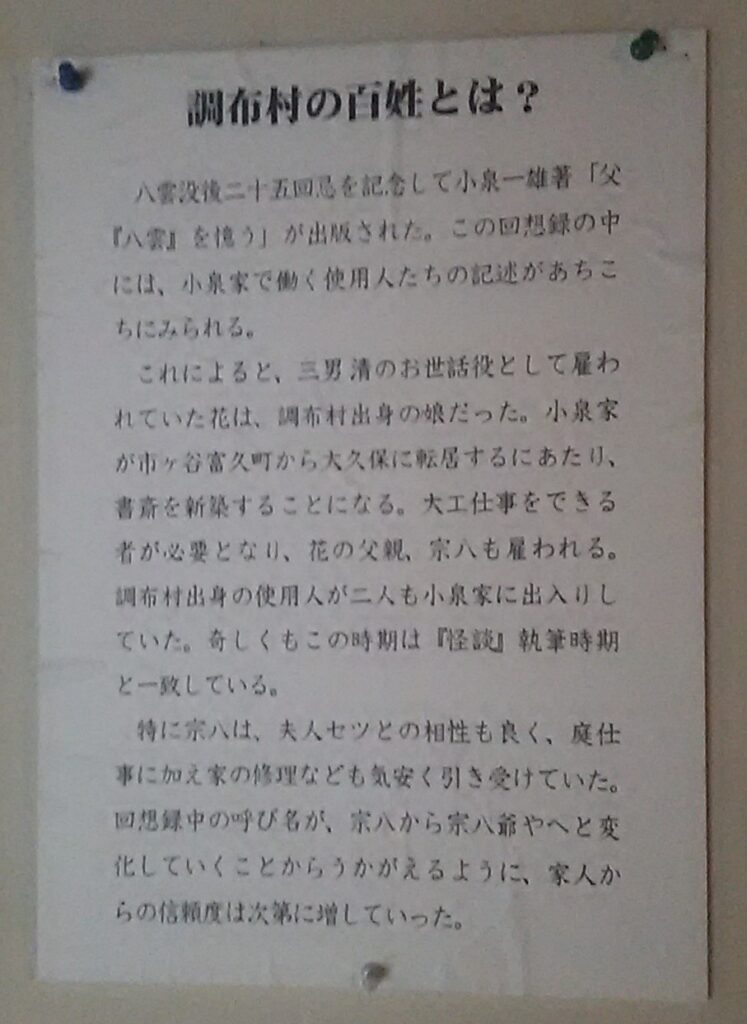 調布村の百姓とは？
八雲没後二十五回忌を記念して小泉一雄著「父
『八雲』を憶う」が出版された。この回想録の中
には、小泉家で働く使用人たちの記述があちこ
ちにみられる。
これによると、三男清のお世話役として雇わ
れていた花は、調布村出身の娘だった。小泉家
が市ヶ谷富久町から大久保に転居するにあたり、
書斎を新築することになる。大工仕事をできる
者が必要となり、花の父親、宗八も雇われる。
調布村出身の使用人が二人も小泉家に出入りし
ていた。奇しくもこの時期は『怪談』執筆時期
と一致している。
特に宗八は、夫人セツとの相性も良く、庭仕
事に加え家の修理なども気安く引き受けていた。
回想録中の呼び名が、宗八から宗八爺やへと変
化していくことからうかがえるように、家人か
らの信頼度は次第に増していった。